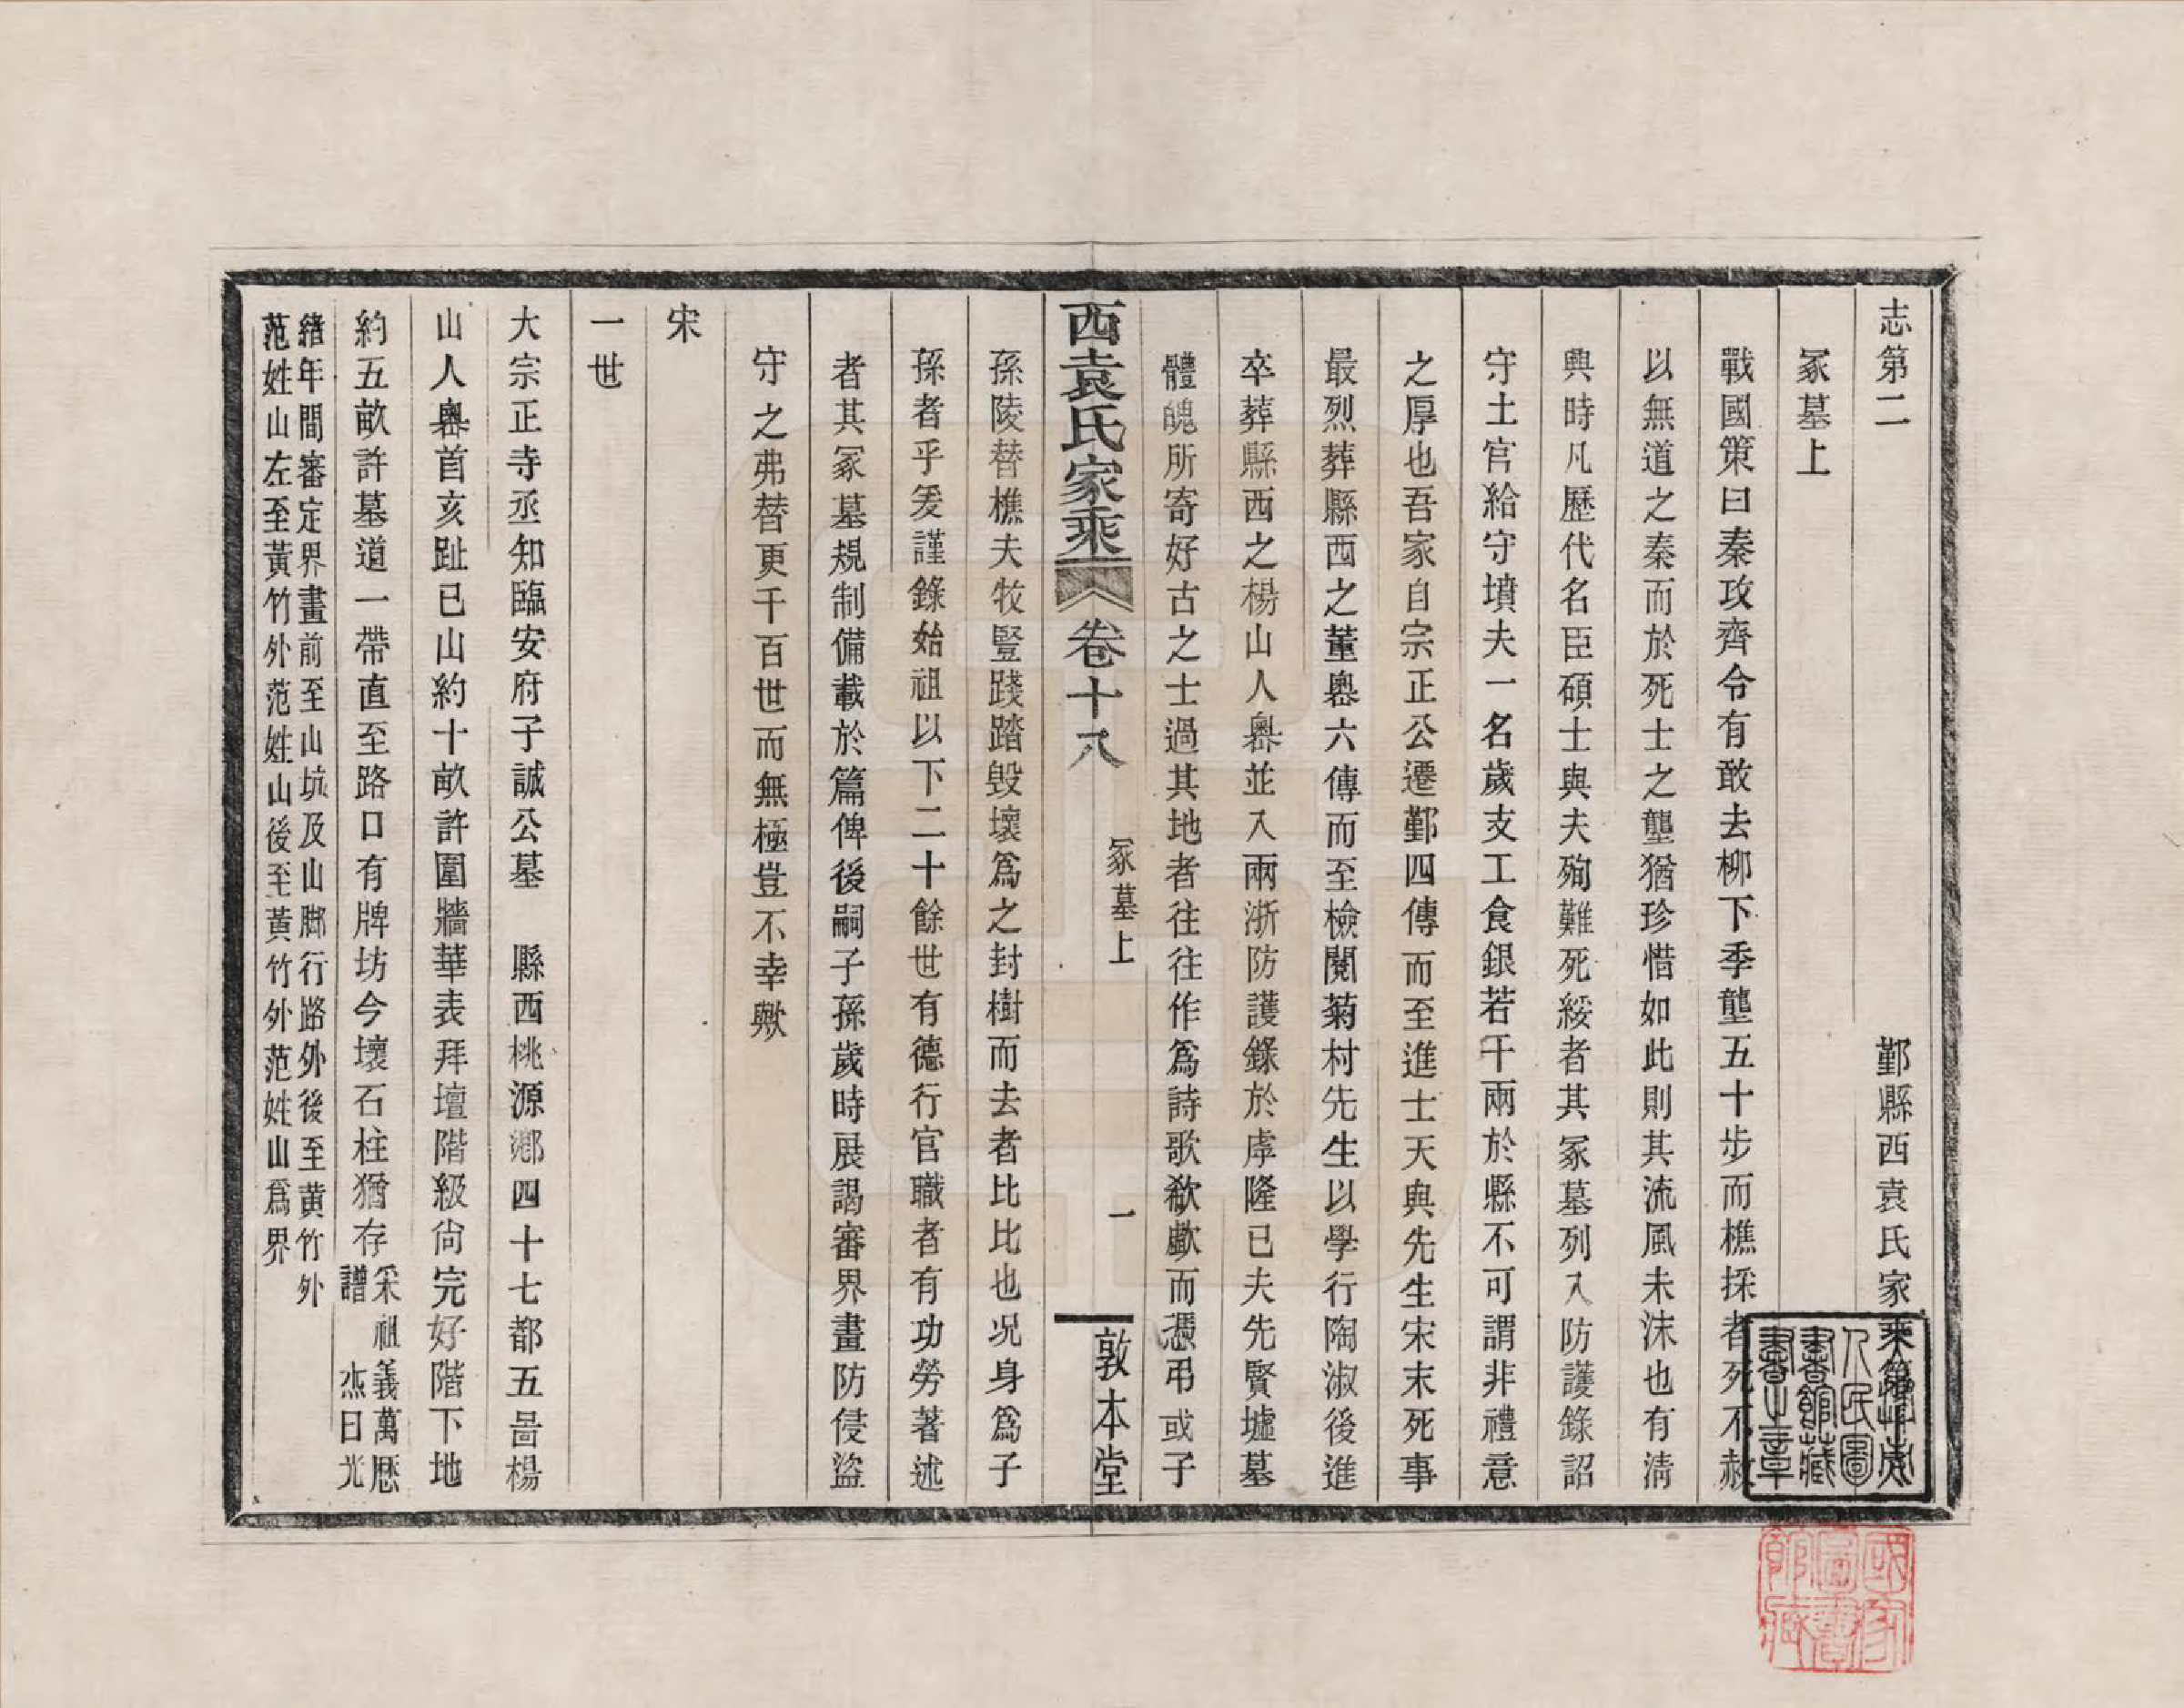 志第二　鄞縣西袁氏家乘第十八
冢墓上
戰國策曰秦攻齊令有敢去柳下季壟五十步而樵採者死不赦
以無道之秦而於死士之壟猶珍惜如此則其流風未沫也有淸
興時凡歷代名臣碩士與夫殉難死綏者其冢墓列入防護錄詔
守土官給守墳夫一名歲支工食銀若干兩於縣不可謂非禮意
之厚也吾家自宗正公遷鄞四傳而至進士天與先生宋末死事
最烈葬縣西之董嶴六傳而至檢閱菊村先生以學行陶淑後進
卒葬縣西之楊山人嶴並入兩浙防護錄於虖隆已夫先賢墟墓
體魄所寄好古之士過其地者往往作爲詩歌欷歔而憑弔或子
西袁氏家乘　卷十八　冢墓上　一　敦本堂
孫陵替樵夫牧豎踐踏毁壞爲之封樹而去者比比也況身爲子
孫者乎爰謹錄始祖以下二十餘世有德行官職者有功勞著述
者其冢墓規制備載於篇俾後嗣子孫歲時展謁審界畫防侵盜
守之弗替更千百世而無極豈不幸歟
宋
一世
大宗正寺丞知臨安府子誠公墓　縣西桃源鄕四十七都五啚楊
山人嶴首亥趾巳山約十畝許圍牆華表拜壇階級尙完好階下地
約五畝許墓道一帶直至路口有牌坊今壞石柱猶存采祖義萬厯
譜　杰日光
緖年間審定界畫前至山坑及山脚行路外後至黄竹外
范姓山左至黃竹外范姓山後至黄竹外范姓山爲界
人民圖
書館藏
書之章
國家
圖書
館藏